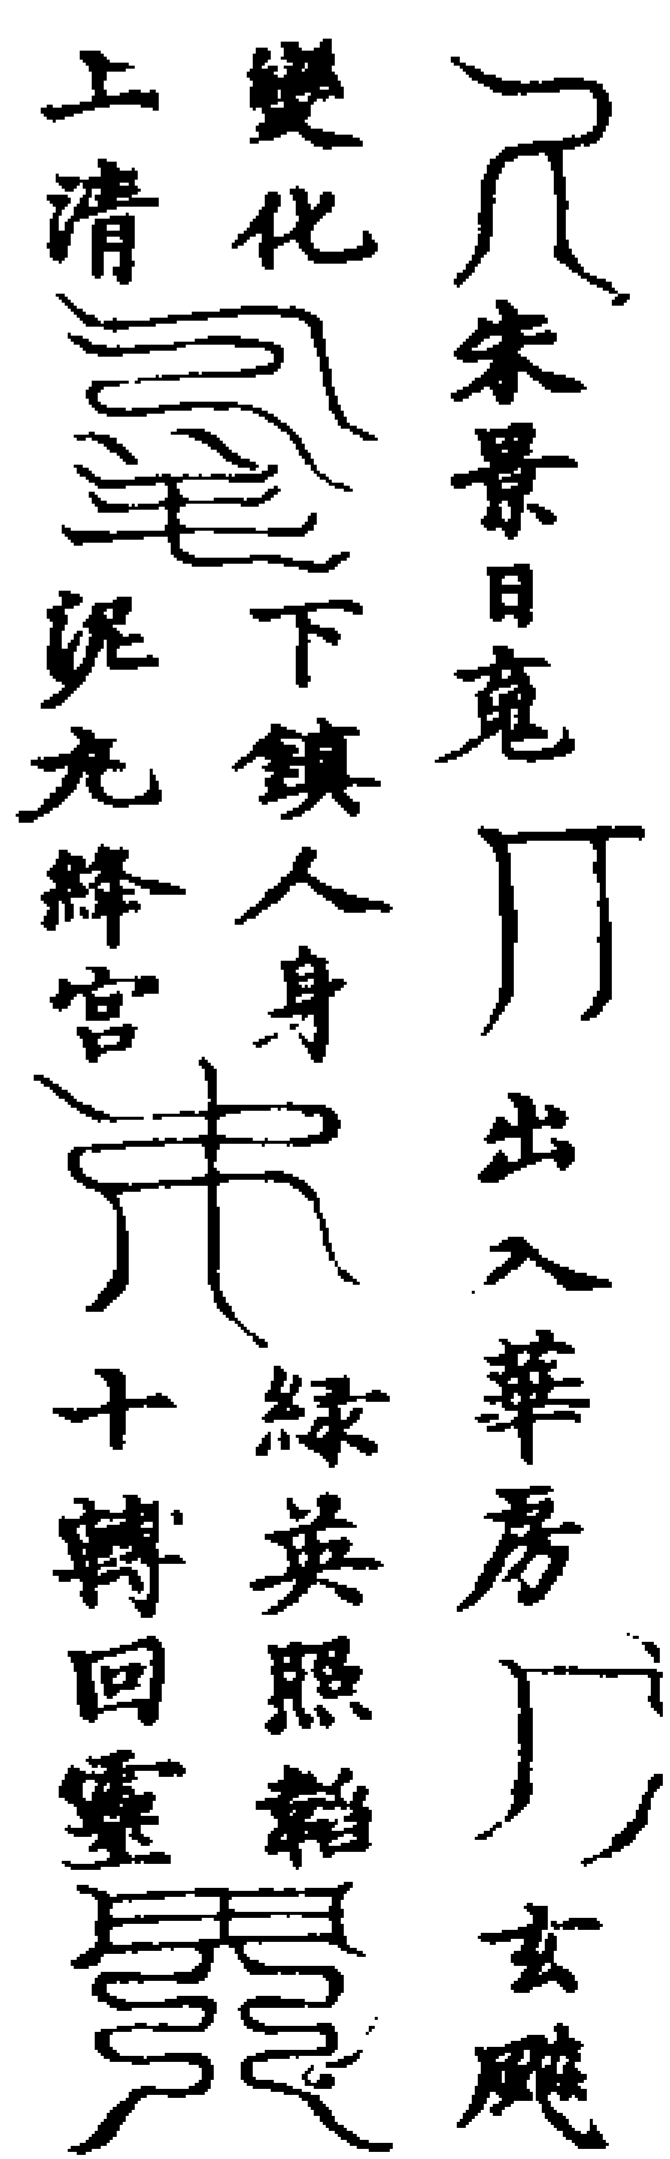 朱景日出入華房玄
變化下鎮人身緑英照韜
上清泥丸絳宮十轉回靈